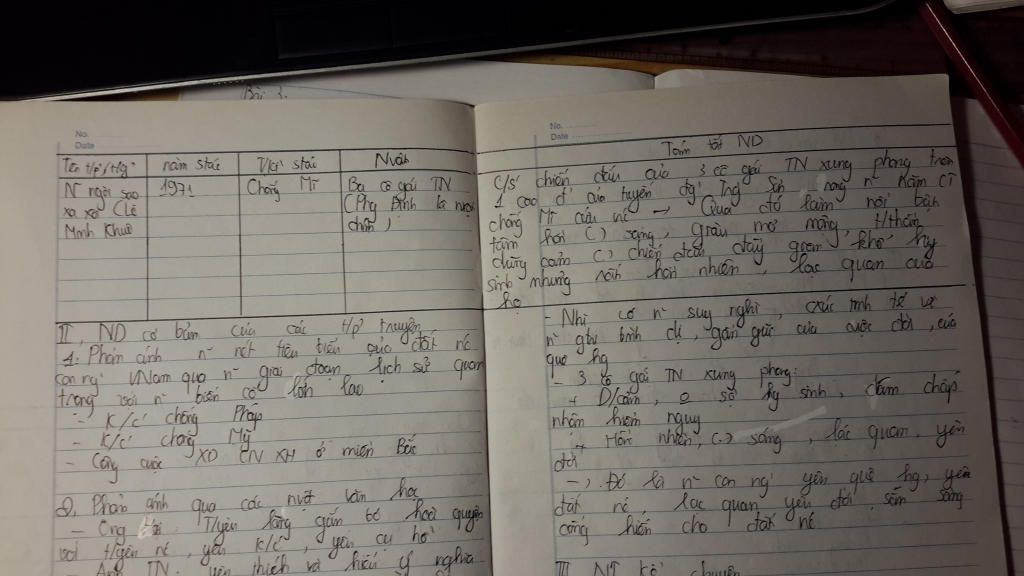 Bài 3.
No.
Date
Tên t/p, t/g
năm stác
T/kì stác
Nvật
N~ ngôi sao
xa xôi (Lê
Minh Khuê
1971
Chống Mĩ
Ba cô gái TN
(Phg Định là nvật
chính)
II, ND cơ bản của các t/p truyện
1. Phản ánh n~ nét tiêu biểu của đất nc
con ng' VNam qua n~ giai đoạn lịch sử quan
trọng với n~ biến cố lớn lao
- K/c' chống Pháp
- K/c' chống Mỹ
- Công cuộc XD CN XH ở miền Bắc
2, Phản ánh qua các nvật văn học
- Ông T/yêu làng gắn bó hoà quyện
với t/yêu nc, yêu k/c', yêu cụ hồ
- Anh TN: yêu thích và hiểu ý nghĩa
No.
Date
Tóm tắt ND
C/s' chiến đấu của 3 cô gái TN xung phong trên
1 cao đ' của tuyến đg' Trg Sơn trong n~ năm c'
chống Mĩ cứu nc → Qua đó làm nổi bật
tâm hồn () sáng, giàu mơ mộng, t/thần
dũng cảm () chiến đấu đầy gian khổ hy
sinh nhưng rất hồn nhiên, lạc quan của
họ
- Nhĩ có n~ suy nghĩ, xúc tinh tế về
n~ gtrị bình dị, gần gũi của cuộc đời, của
quê hg
- 3 cô gái TN xung phong:
+ D/cảm, o sợ hy sinh, chấp
nhận hiểm nguy
+ Hồn nhiên, () sáng, lạc quan, yêu
đời
→ Đó là n~ con ng' yêu quê hg, yêu
đất nc lạc quan yêu đời, sẵn sàng
cống hiến cho đất nc
III NT kể chuyện